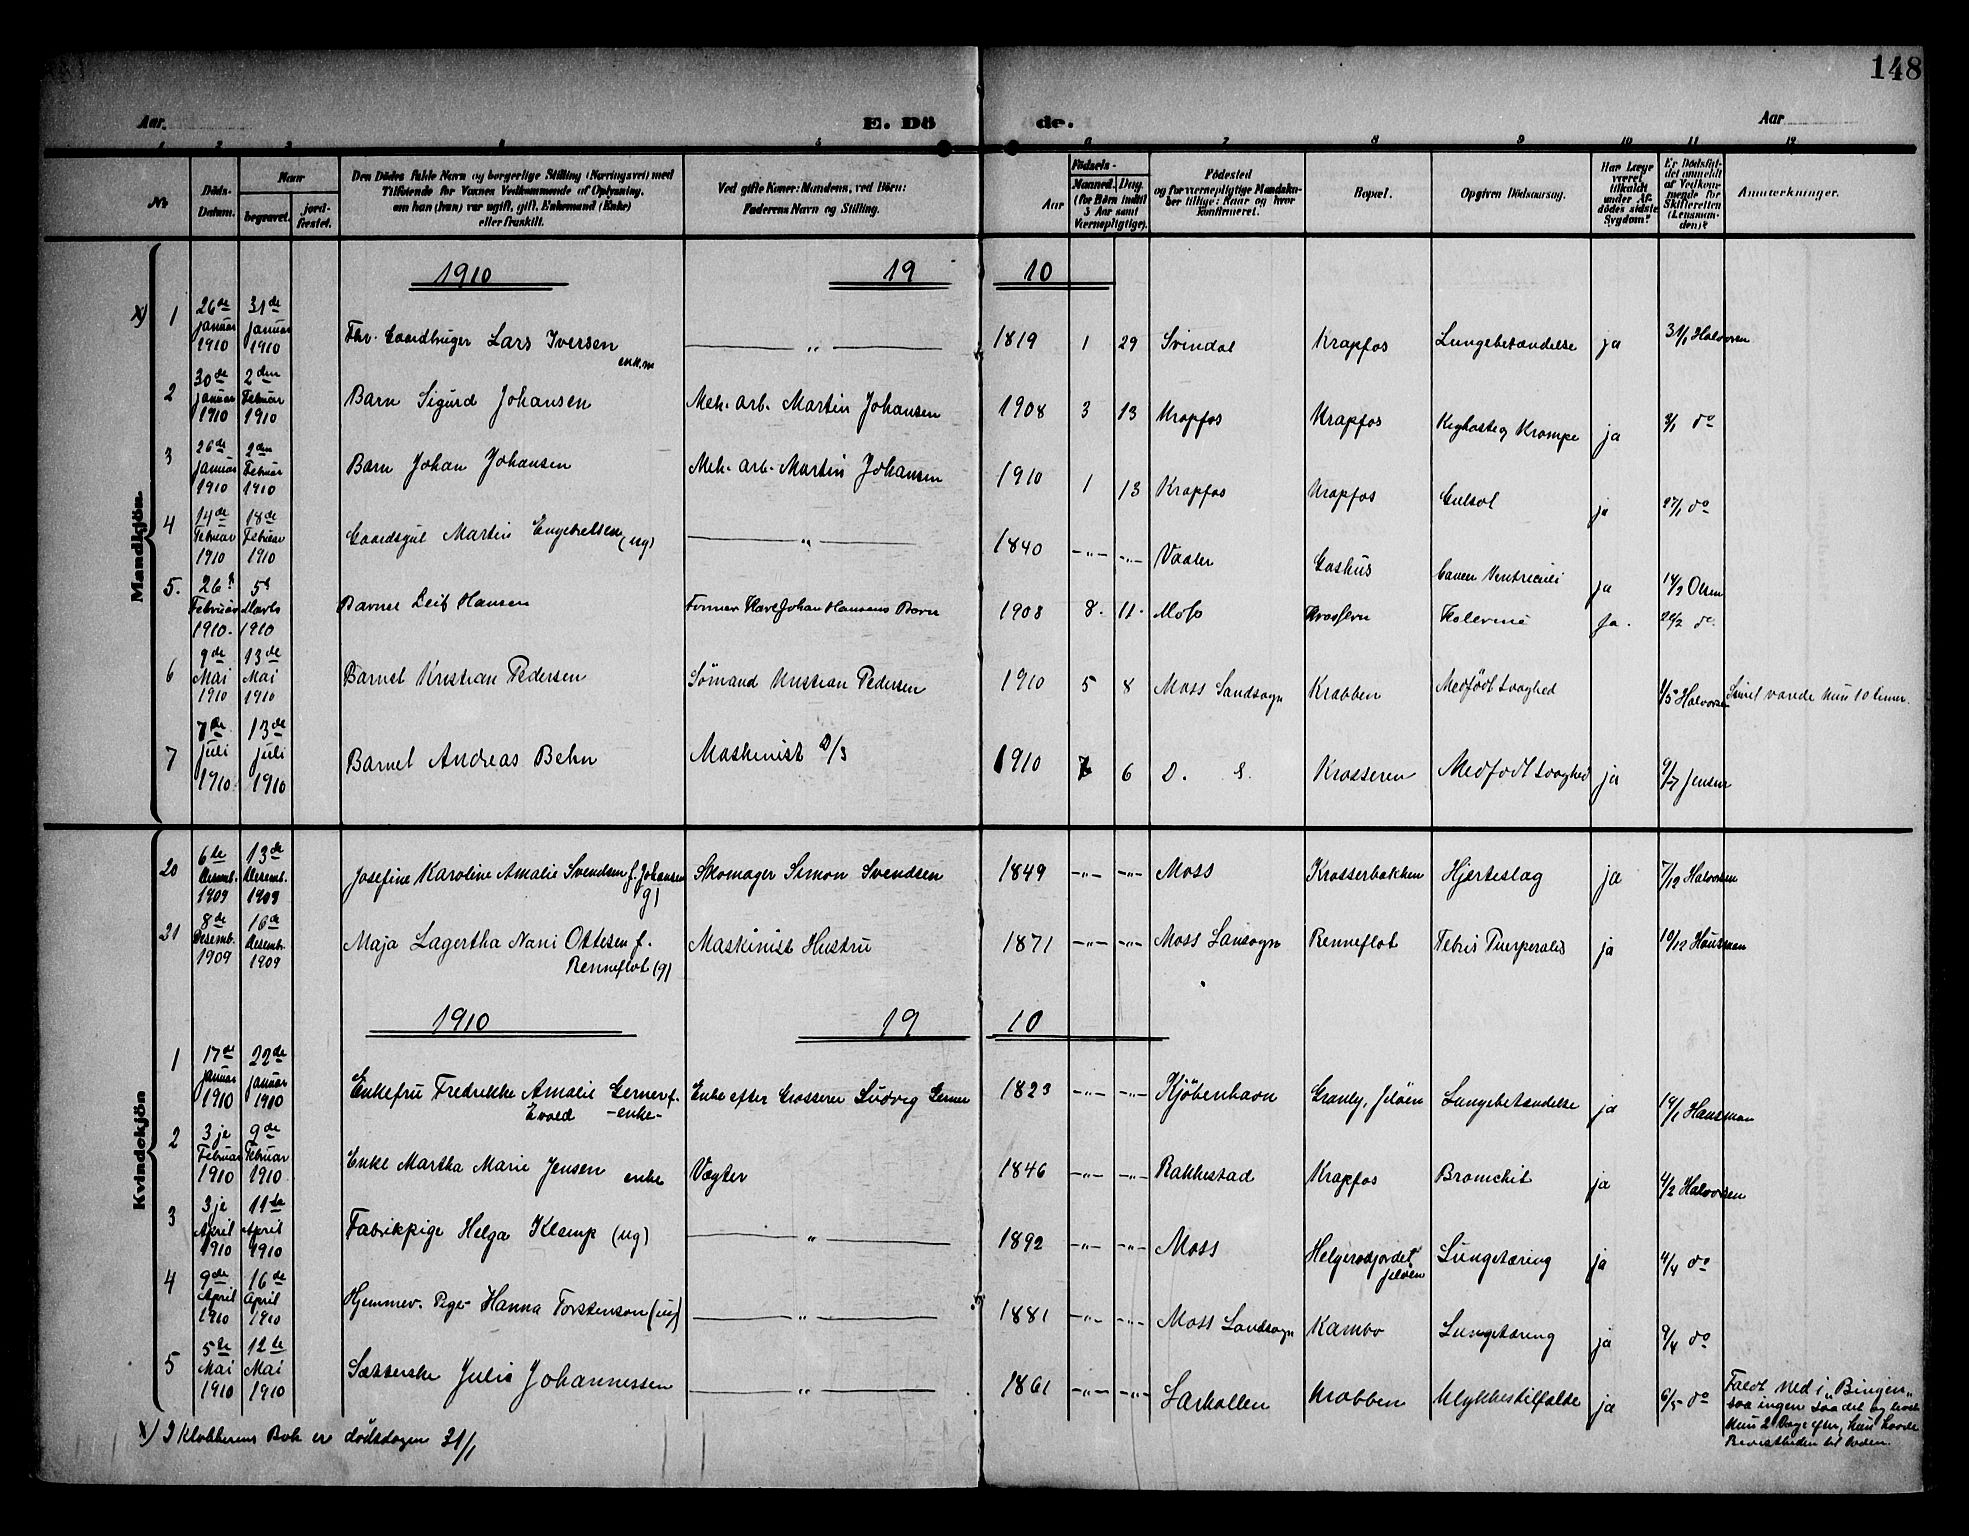 148
Aar. E. Dö de. Aar
1 2 3 4 5 6 7 8 9 10 11 12
No. Döds-Datum. Naar begravet. jord-fæstet. Den Dödes fulde Navn og borgerlige Stilling (Næringsvei) med Tilföiende for Voxnes Vedkommende af Oplysning, om han (hun) var ugift, gift, Enkemand (Enke) eller fraskilt. Ved gifte Koner: Mandens, ved Börn: Faderens Navn og Stilling. Födsels- Aar Maaned. Dag. (for Börn indtil 3 Aar samt Værnepligtige). Födested og for værnepligtige Mandska-ber tillige: Naar og hvor konfirmeret. Bopæl. Opgiven Dödsaarsag. Har Læge været tilkaldt under Af-dödes sidste Sygdom? Er Dödsfal-det anmeldt af Vedkom-mende for Skifteretten (Lensman-den)? Anmærkninger.
Mandkjön.
1910 19 10
x) 1 26de januar 1910 31de januar 1910 Fhv. Gaardbruger Lars Iversen enk.m — " — 1819 1 29 Svindal Krapfos Lungebetændelse ja 31/1 Halvorsen
2 30de januar 1910 2den Februar 1910 Barn Sigurd Johansen Mek. arb. Martin Johansen 1908 3 13 Krapfos Krapfos Kighoste og Krampe ja do
3 26de januar 1910 2den Februar 1910 Barn Johan Johansen Mek. arb. Martin Johansen 1910 1 13 Krapfos Krapfos Gulsot ja 27/1 do
4 14de Februar 1910 18de Februar 1910 Gaardsgut Martin Engebretsen (ug) — " — 1840 -"- -"- Vaaler Gashus Cancer Ventriculi ja 14/2 Olsen
5. 26d Februar 1910. 5d Marts 1910 Barnet Leif Hansen Former Karl Johan Hansens Barn 1908 8. 11. Moss Krosseren Ja. 26/2 do.
6 9de Mai 1910 13de Mai 1910 Barnet Kristian Pedersen Sømand Kristian Pedersen 1910 5 8 Moss Landsogn Krabben Medfødt Svaghed Halvorsen Livet varede kun 10 timer.
7 7de juli 1910 13de juli 1910 Barnet Andreas Behn Maskinist D/S 1910 7 6 D. S. Krosseren Medfødt Svaghed ja 9/7 Jensen
Kvindekjön
20 6te Desemb. 1909 13de Desemb. 1909 Josefine Karoline Amalie Svendsen f. Johansen g) Skomager Simon Svendsen 1849 -"- -"- Moss Krosserbakken Hjerteslag ja 7/12 Halvorsen
21 8de Desemb. 1909 16de Desemb. 1909 Maja Lagertha Nani Ottesen f. Renneflot (g) Maskinist Hustru 1871 -"- -"- Moss Lansogn Renneflot Febris Puerperalis ja 10/12 Hausman
1910 19 10
1 17de januar 1910 22de januar 1910 Enkefru Fredrikke Amalie Gerner f. Evald -enke- Enke efter Grosserer Ludvig Gerner 1823 -"- -"- Kjøbenhavn Granly, Jeløen Lungebetændelse ja 19/1 Hausman
2 3je Februar 1910 9de Februar 1910 Enke Martha Marie Jensen enke Vægter 1846 -"- -"- Rakkestad Krapfos Bronchit ja 4/2 Halvorsen
3 3je April 1910 11te April 1910 Fabrikpige Helga Klemp (ug) — " — 1892 -"- -"- Moss Helgerødjordet Jeløen Lungetæring ja 4/4 do
4 9de April 1910 16de April 1910 Hjemmev. Pige Hanna Torstenson (ug) — " — 1881 -"- -"- Moss Landsogn Kambo Lungetæring ja 9/4 do
5 5te Mai 1910 12te Mai 1910 Sætterske Julie Johannessen — " — 1861 -"- -"- Larkollen Krabben Ulykkestilfælde ja 6/5 do Faldt ned i "Bingen" saa ingen saa det og levde kun 2 Dage efter, hun havde Bevistheden til Døden.
x) I Klokkerens Bok er dødsdagen 31/1